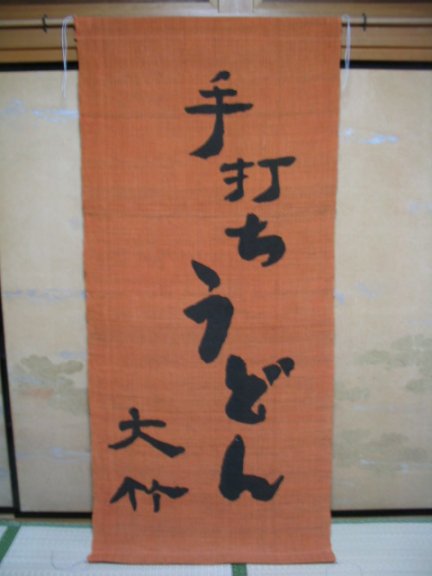 手打ちうどん
大竹